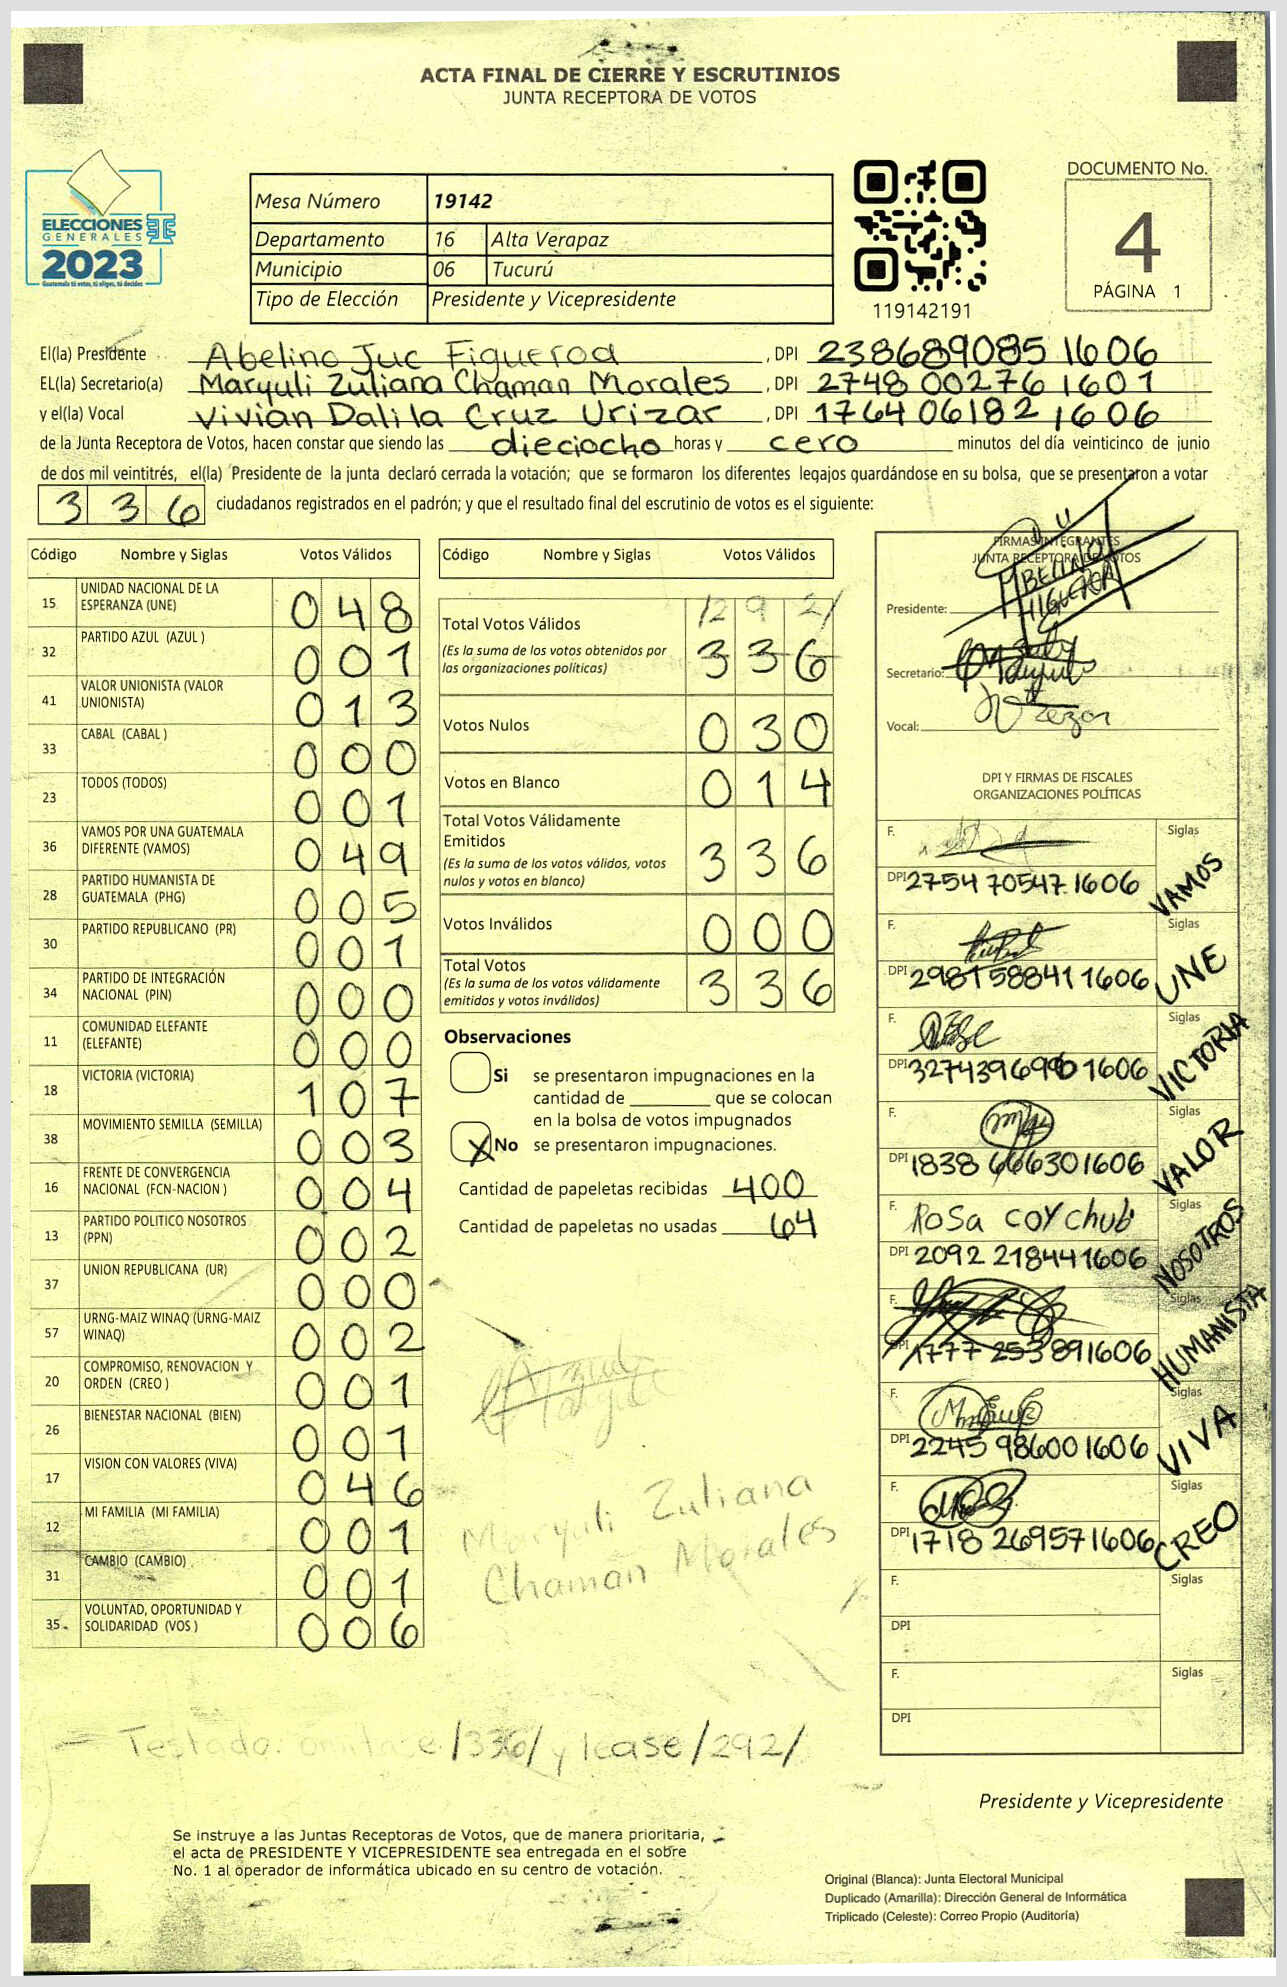 ACTA FINAL DE CIERRE Y ESCRUTINIOS
JUNTA RECEPTORA DE VOTOS
ELECCIONES
GENERALES
2023
Guatemala tú votas, tú eliges, tú decides
Mesa Número 19142
Departamento 16 Alta Verapaz
Municipio 06 Tucurú
Tipo de Elección Presidente y Vicepresidente
119142191
DOCUMENTO No.
4
PÁGINA 1
El(la) Presidente Abelino Juc Figueroa , DPI 238689085 1606
EL(la) Secretario(a) Maryuli Zuliana Chaman Morales , DPI 2748 00276 1601
y el(la) Vocal Vivian Dalila Cruz Urizar , DPI 1764 06182 1606
de la Junta Receptora de Votos, hacen constar que siendo las dieciocho horas y cero minutos del día veinticinco de junio
de dos mil veintitrés, el(la) Presidente de la junta declaró cerrada la votación; que se formaron los diferentes legajos guardándose en su bolsa, que se presentaron a votar
336 ciudadanos registrados en el padrón; y que el resultado final del escrutinio de votos es el siguiente:
Código Nombre y Siglas Votos Válidos
15 UNIDAD NACIONAL DE LA ESPERANZA (UNE) 048
32 PARTIDO AZUL (AZUL ) 001
41 VALOR UNIONISTA (VALOR UNIONISTA) 013
33 CABAL (CABAL ) 000
23 TODOS (TODOS) 001
36 VAMOS POR UNA GUATEMALA DIFERENTE (VAMOS) 049
28 PARTIDO HUMANISTA DE GUATEMALA (PHG) 005
30 PARTIDO REPUBLICANO (PR) 001
34 PARTIDO DE INTEGRACIÓN NACIONAL (PIN) 000
11 COMUNIDAD ELEFANTE (ELEFANTE) 000
18 VICTORIA (VICTORIA) 107
38 MOVIMIENTO SEMILLA (SEMILLA) 003
16 FRENTE DE CONVERGENCIA NACIONAL (FCN-NACION ) 004
13 PARTIDO POLITICO NOSOTROS (PPN) 002
37 UNION REPUBLICANA (UR) 000
57 URNG-MAIZ WINAQ (URNG-MAIZ WINAQ) 002
20 COMPROMISO, RENOVACION Y ORDEN (CREO ) 001
26 BIENESTAR NACIONAL (BIEN) 001
17 VISION CON VALORES (VIVA) 046
12 MI FAMILIA (MI FAMILIA) 001
31 CAMBIO (CAMBIO) 001
35 VOLUNTAD, OPORTUNIDAD Y SOLIDARIDAD (VOS ) 006
Código Nombre y Siglas Votos Válidos
/292/
Total Votos Válidos 336
(Es la suma de los votos obtenidos por
las organizaciones políticas)
Votos Nulos 030
Votos en Blanco 014
Total Votos Válidamente
Emitidos 336
(Es la suma de los votos válidos, votos
nulos y votos en blanco)
Votos Inválidos 000
Total Votos 336
(Es la suma de los votos válidamente
emitidos y votos inválidos)
Observaciones
Si se presentaron impugnaciones en la
cantidad de ________ que se colocan
en la bolsa de votos impugnados
X No se presentaron impugnaciones.
Cantidad de papeletas recibidas 400
Cantidad de papeletas no usadas 64
Maryuli Zuliana
Chaman Morales
Testado: omitase /336/ y lease /292/
FIRMAS INTEGRANTES
JUNTA RECEPTORA DE VOTOS
Presidente: ABELINO FIGUEROA
Secretario:
Vocal:
DPI Y FIRMAS DE FISCALES
ORGANIZACIONES POLÍTICAS
F. Siglas
DPI 2754 70547 1606 VAMOS
F. Siglas
DPI 2981 58841 1606 UNE
F. Siglas
DPI 1606 VICTORIA
F. Siglas
DPI 1838 66630 1606 VALOR
F. Rosa Coy Chub Siglas
DPI 2092 21844 1606 NOSOTROS
F. Siglas
DPI 1777 25389 1606 HUMANISTA
F. Siglas
DPI 2245 98600 1606 VIVA
F. Siglas
DPI 1718 26957 1606 CREO
F. Siglas
DPI
F. Siglas
DPI
Presidente y Vicepresidente
Se instruye a las Juntas Receptoras de Votos, que de manera prioritaria,
el acta de PRESIDENTE Y VICEPRESIDENTE sea entregada en el sobre
No. 1 al operador de informática ubicado en su centro de votación.
Original (Blanca): Junta Electoral Municipal
Duplicado (Amarilla): Dirección General de Informática
Triplicado (Celeste): Correo Propio (Auditoría)